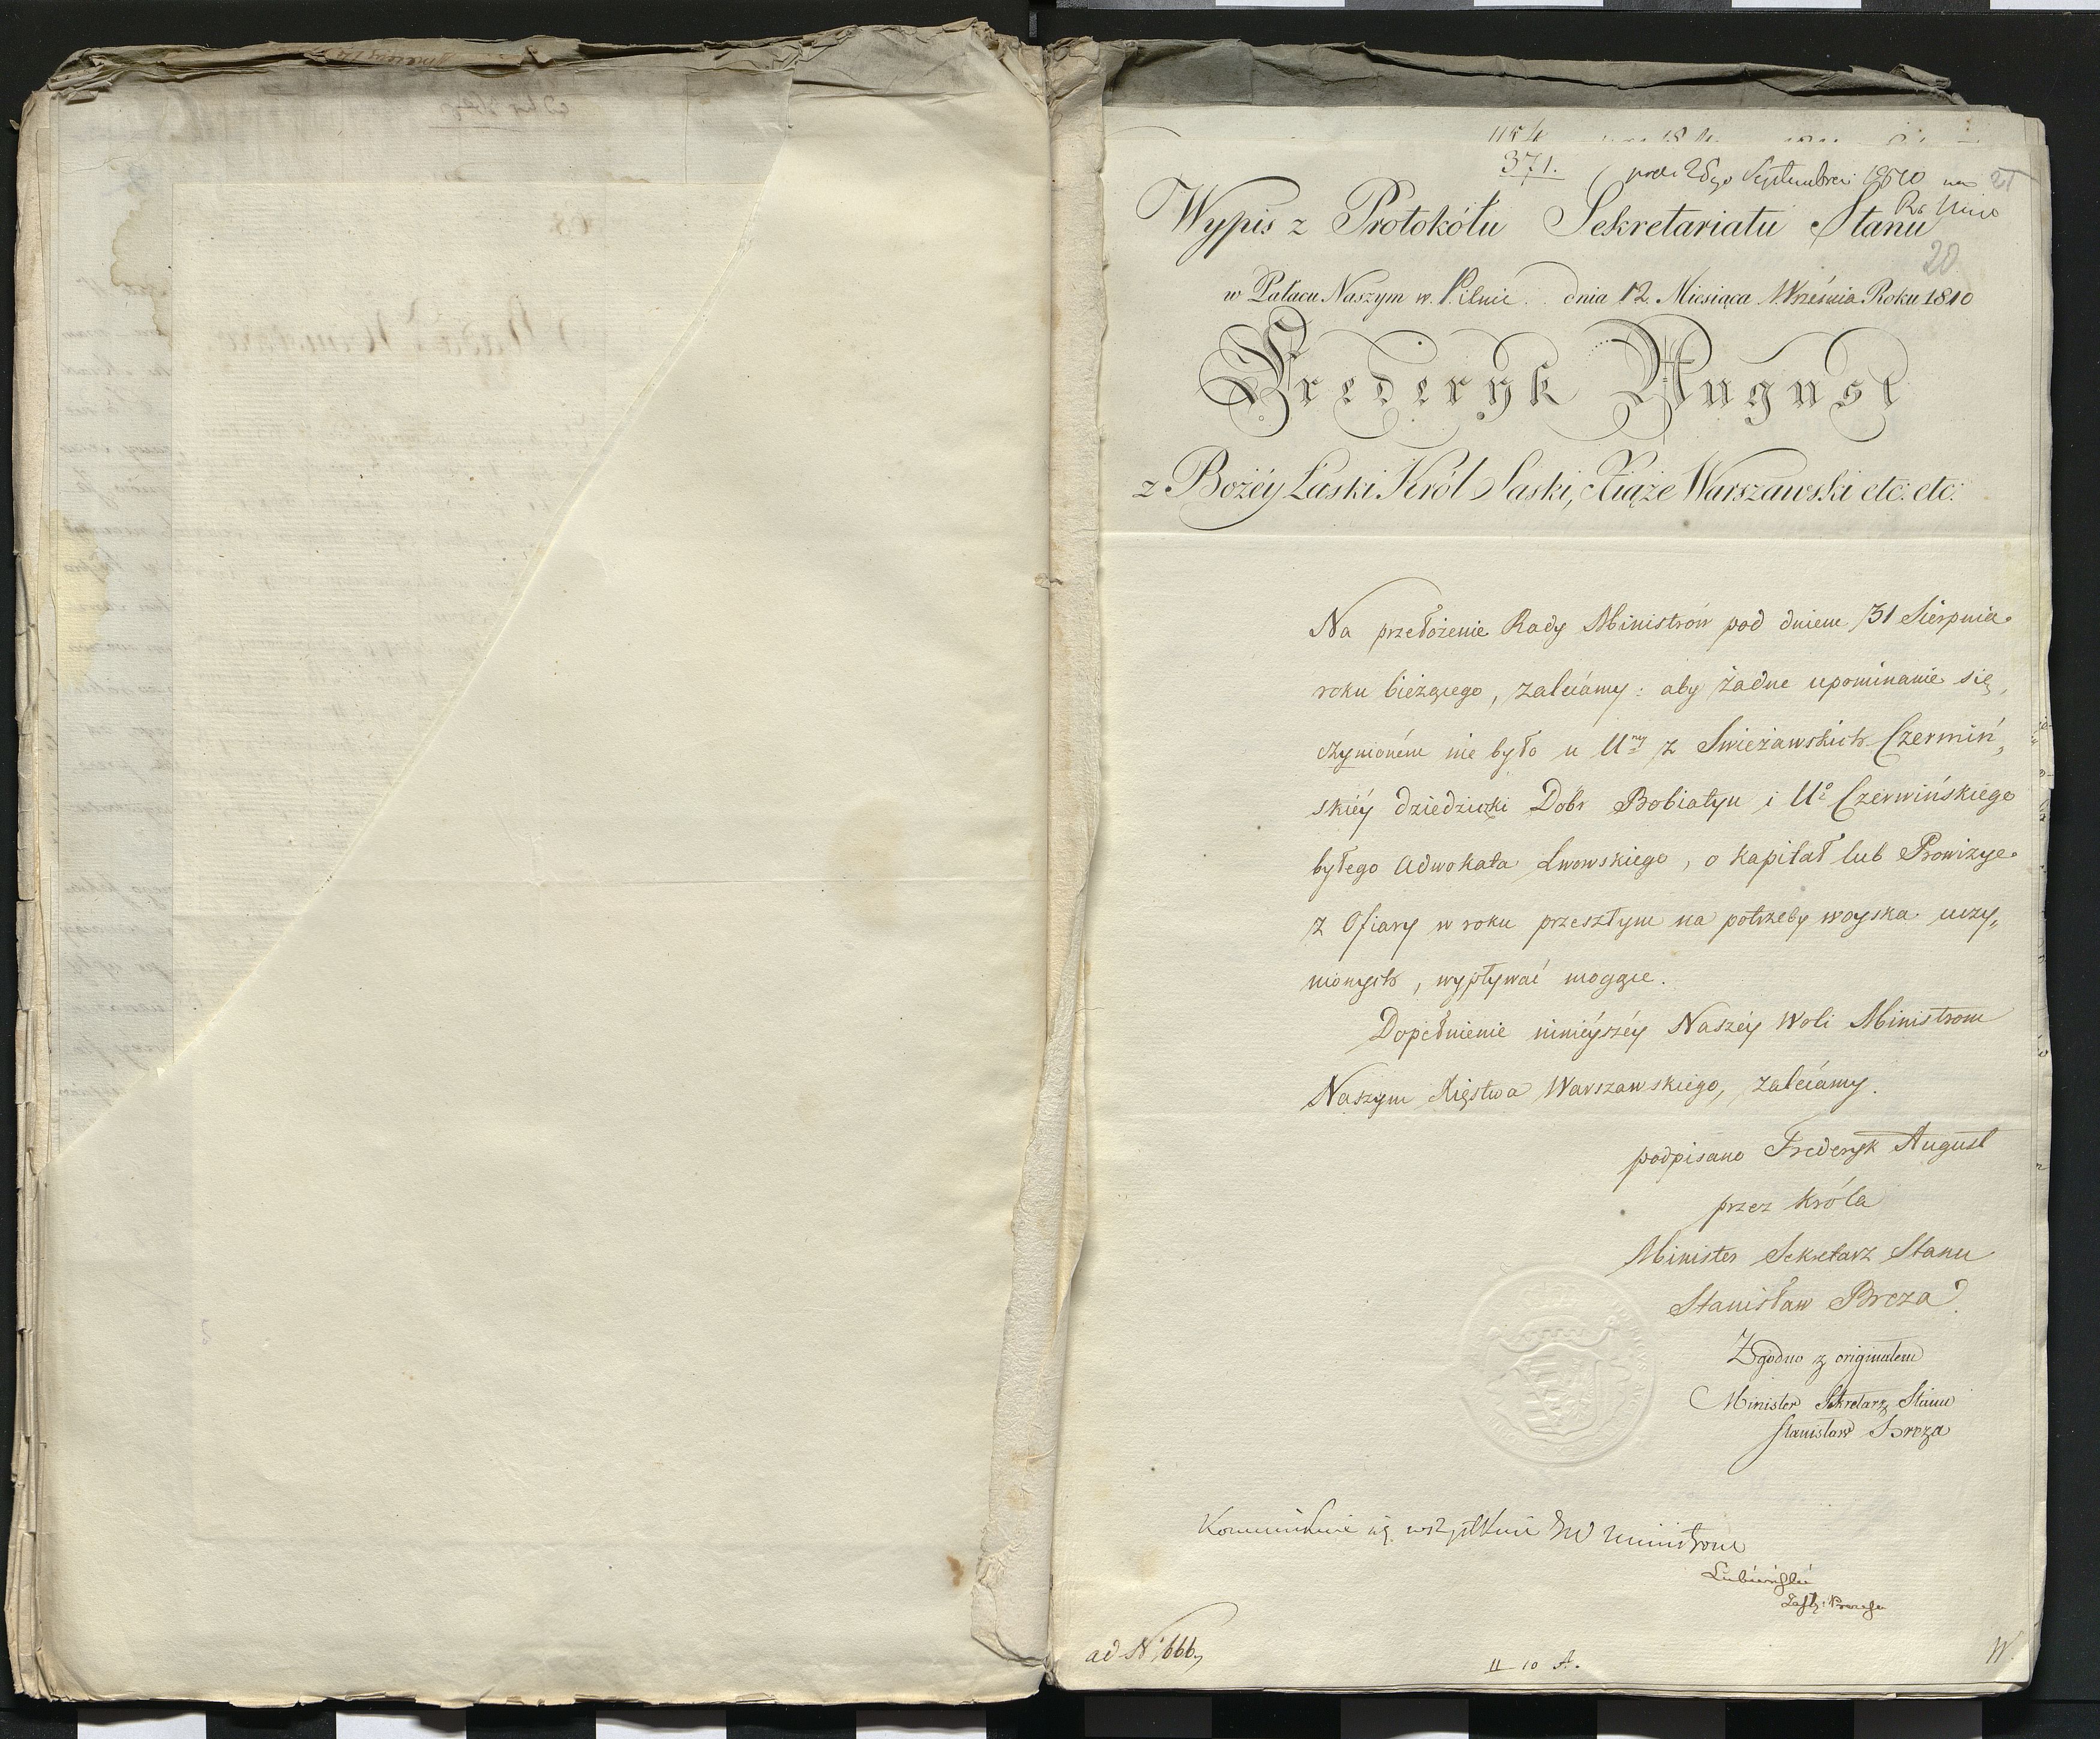 371.
20
Wypis z Protokółu Sekretariatu Stanu
w Pałacu Naszym w Pilnic dnia 12. Miesiąca Września Roku 1810
Frederyk August
z Bożéy Łaski Król Saski, Xiąże Warszawski etc. etc.
Na przełożenie Rady Ministrów pod dniem 31 Sierpnia
roku bieżącego, zalecamy: aby żadne upominanie się,
czynioném nie było u Ur̲n̲y̲ z Swieżawskich Czermiń,
skiéy dziedziczki Dobr Bobiatyn i Uo Czerwińskiego
byłego Adwokata Lwowskiego, o kapitał lub Prowizye
z Ofiary w roku przeszłym na potrzeby woyska uczy,
nionych, wypływać mogące.
Dopełnienie ninieyszéy Naszéy Woli Ministrom
Naszym Xięstwa Warszawskiego, zalecamy.
podpisano Frederyk August
przez Króla
Minister Sekretarz Stanu
Stanisław Breza
Zgodno z originałem
Minister Sekretarz Stanu
Stanisław Breza
wszystkim Ministrom
Łubieński
ad N. 666,
II 10 A.